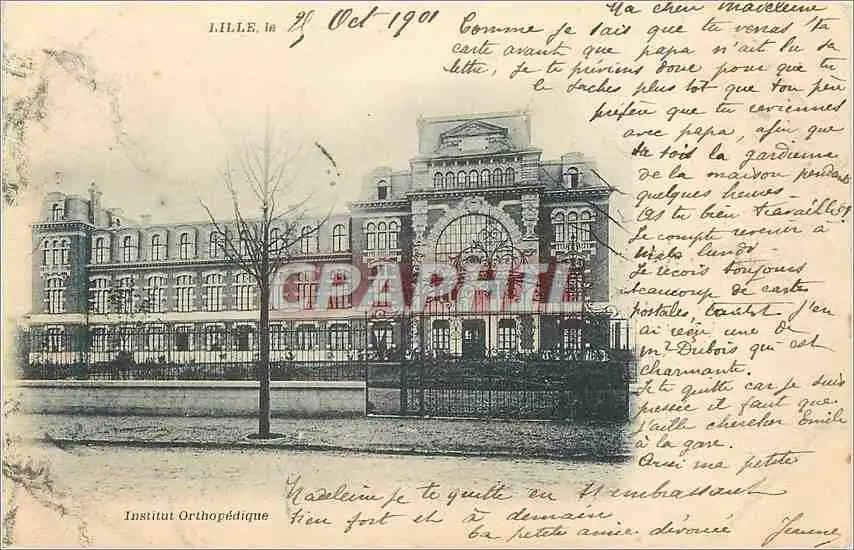 LILLE, le 25 Oct 1901
Ma chère Madeleine
Comme je sais que tu verras ta
carte avant que papa n'ait lu sa
lettre, je te préviens donc pour que tu
le saches plus tôt que ton père
préfère que tu reviennes
avec papa, afin que
tu sois la gardienne
de la maison pendant
quelques heures
As tu bien travaillé?
Je compte revenir à
lundi
Je reçois toujours
beaucoup de cartes
postales, j'en
ai reçu une de
Mr Dubois qui est
charmante.
Je te quitte car je suis
pressée il faut que
j'aille chercher Emile
à la gare.
ma petite
Madeleine je te quitte en t'embrassant
bien fort et à demain
ta petite amie dévouée Jeanne
Institut Orthopédique
CPARAMA